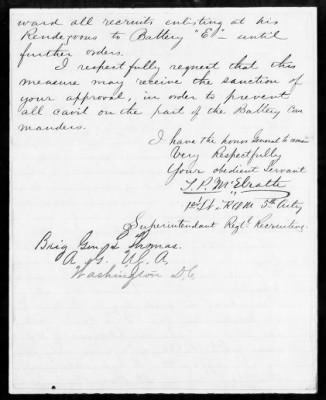 ward all recruits enlisting at his
Rendezvous to Battery "E" - until
further orders.
I respectfully request that this
measure may receive the sanction of
your approval, in order to prevent
all cavil on the part of the Battery Com
manders.
I have the honor General to remain
Very Respectfully
Your obedient Servant
T. P. McElrath
1st Lt. & R.Q.M. 5th Arty
Superintendant Regl. Recruiting.
Brig Genl L Thomas.
A. G. U.S.A.
Washington D.C.